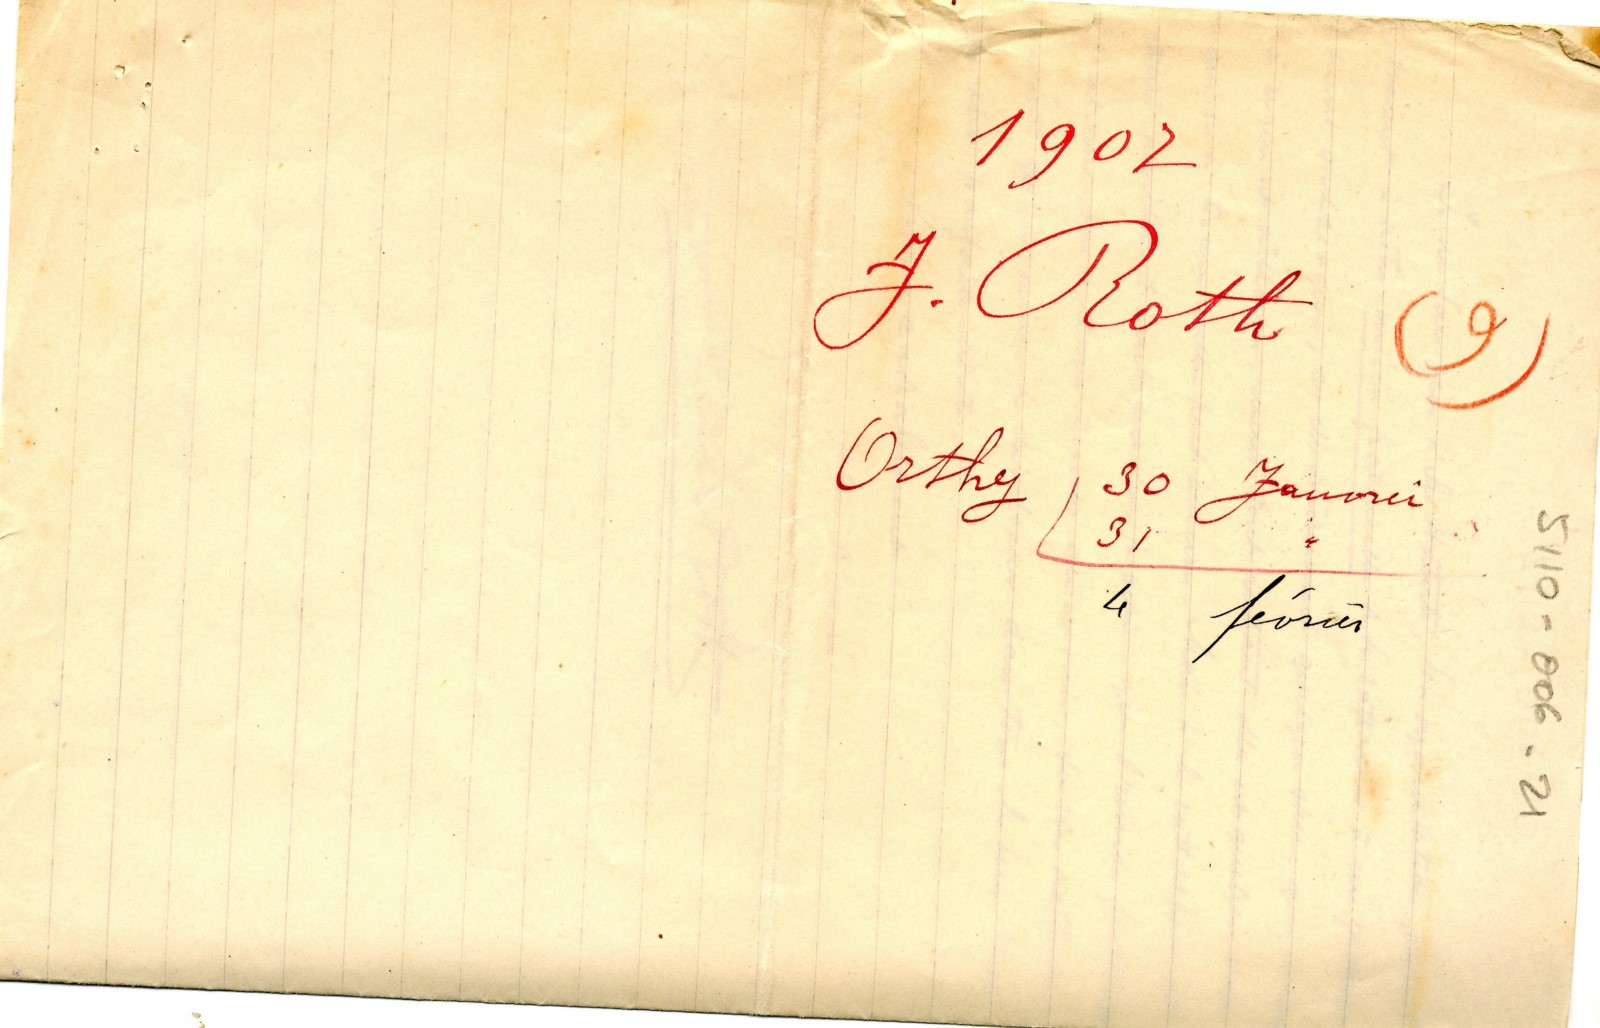 1902
J. Roth
(9)
Orthy 30 Janvier
31 "
4 février
5110-006-21